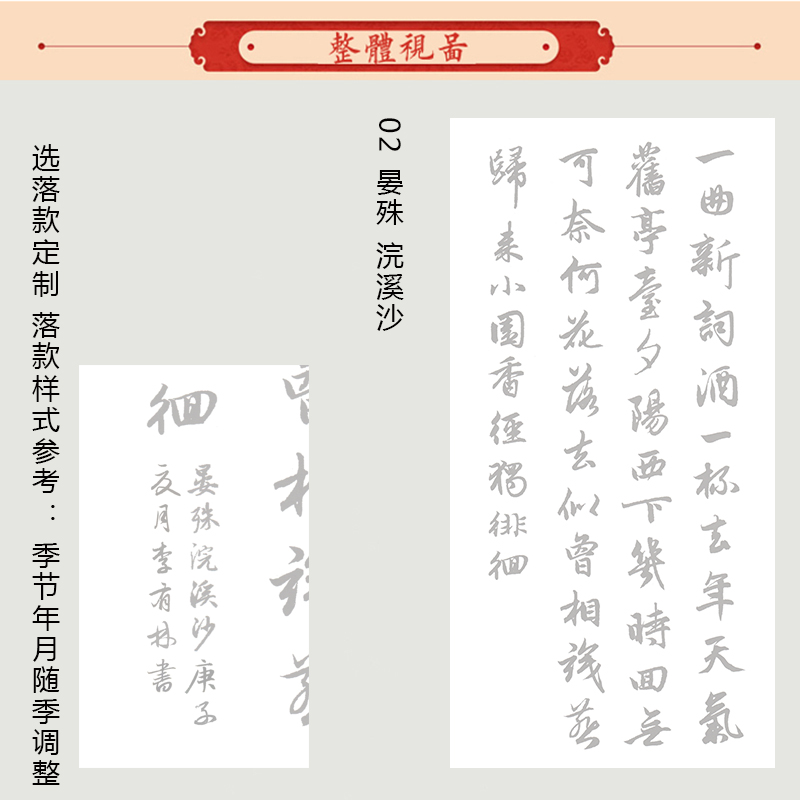 整體視啚
选落款定制 落款样式参考： 季节年月随季调整
02 晏殊 浣溪沙
一曲新詞酒一杯去年天氣
舊亭臺夕陽西下幾時囬無
可奈何花落去似曾相識燕
歸来小園香徑獨徘徊
曾相識燕
徊
晏殊浣溪沙庚子
夏月李有林書